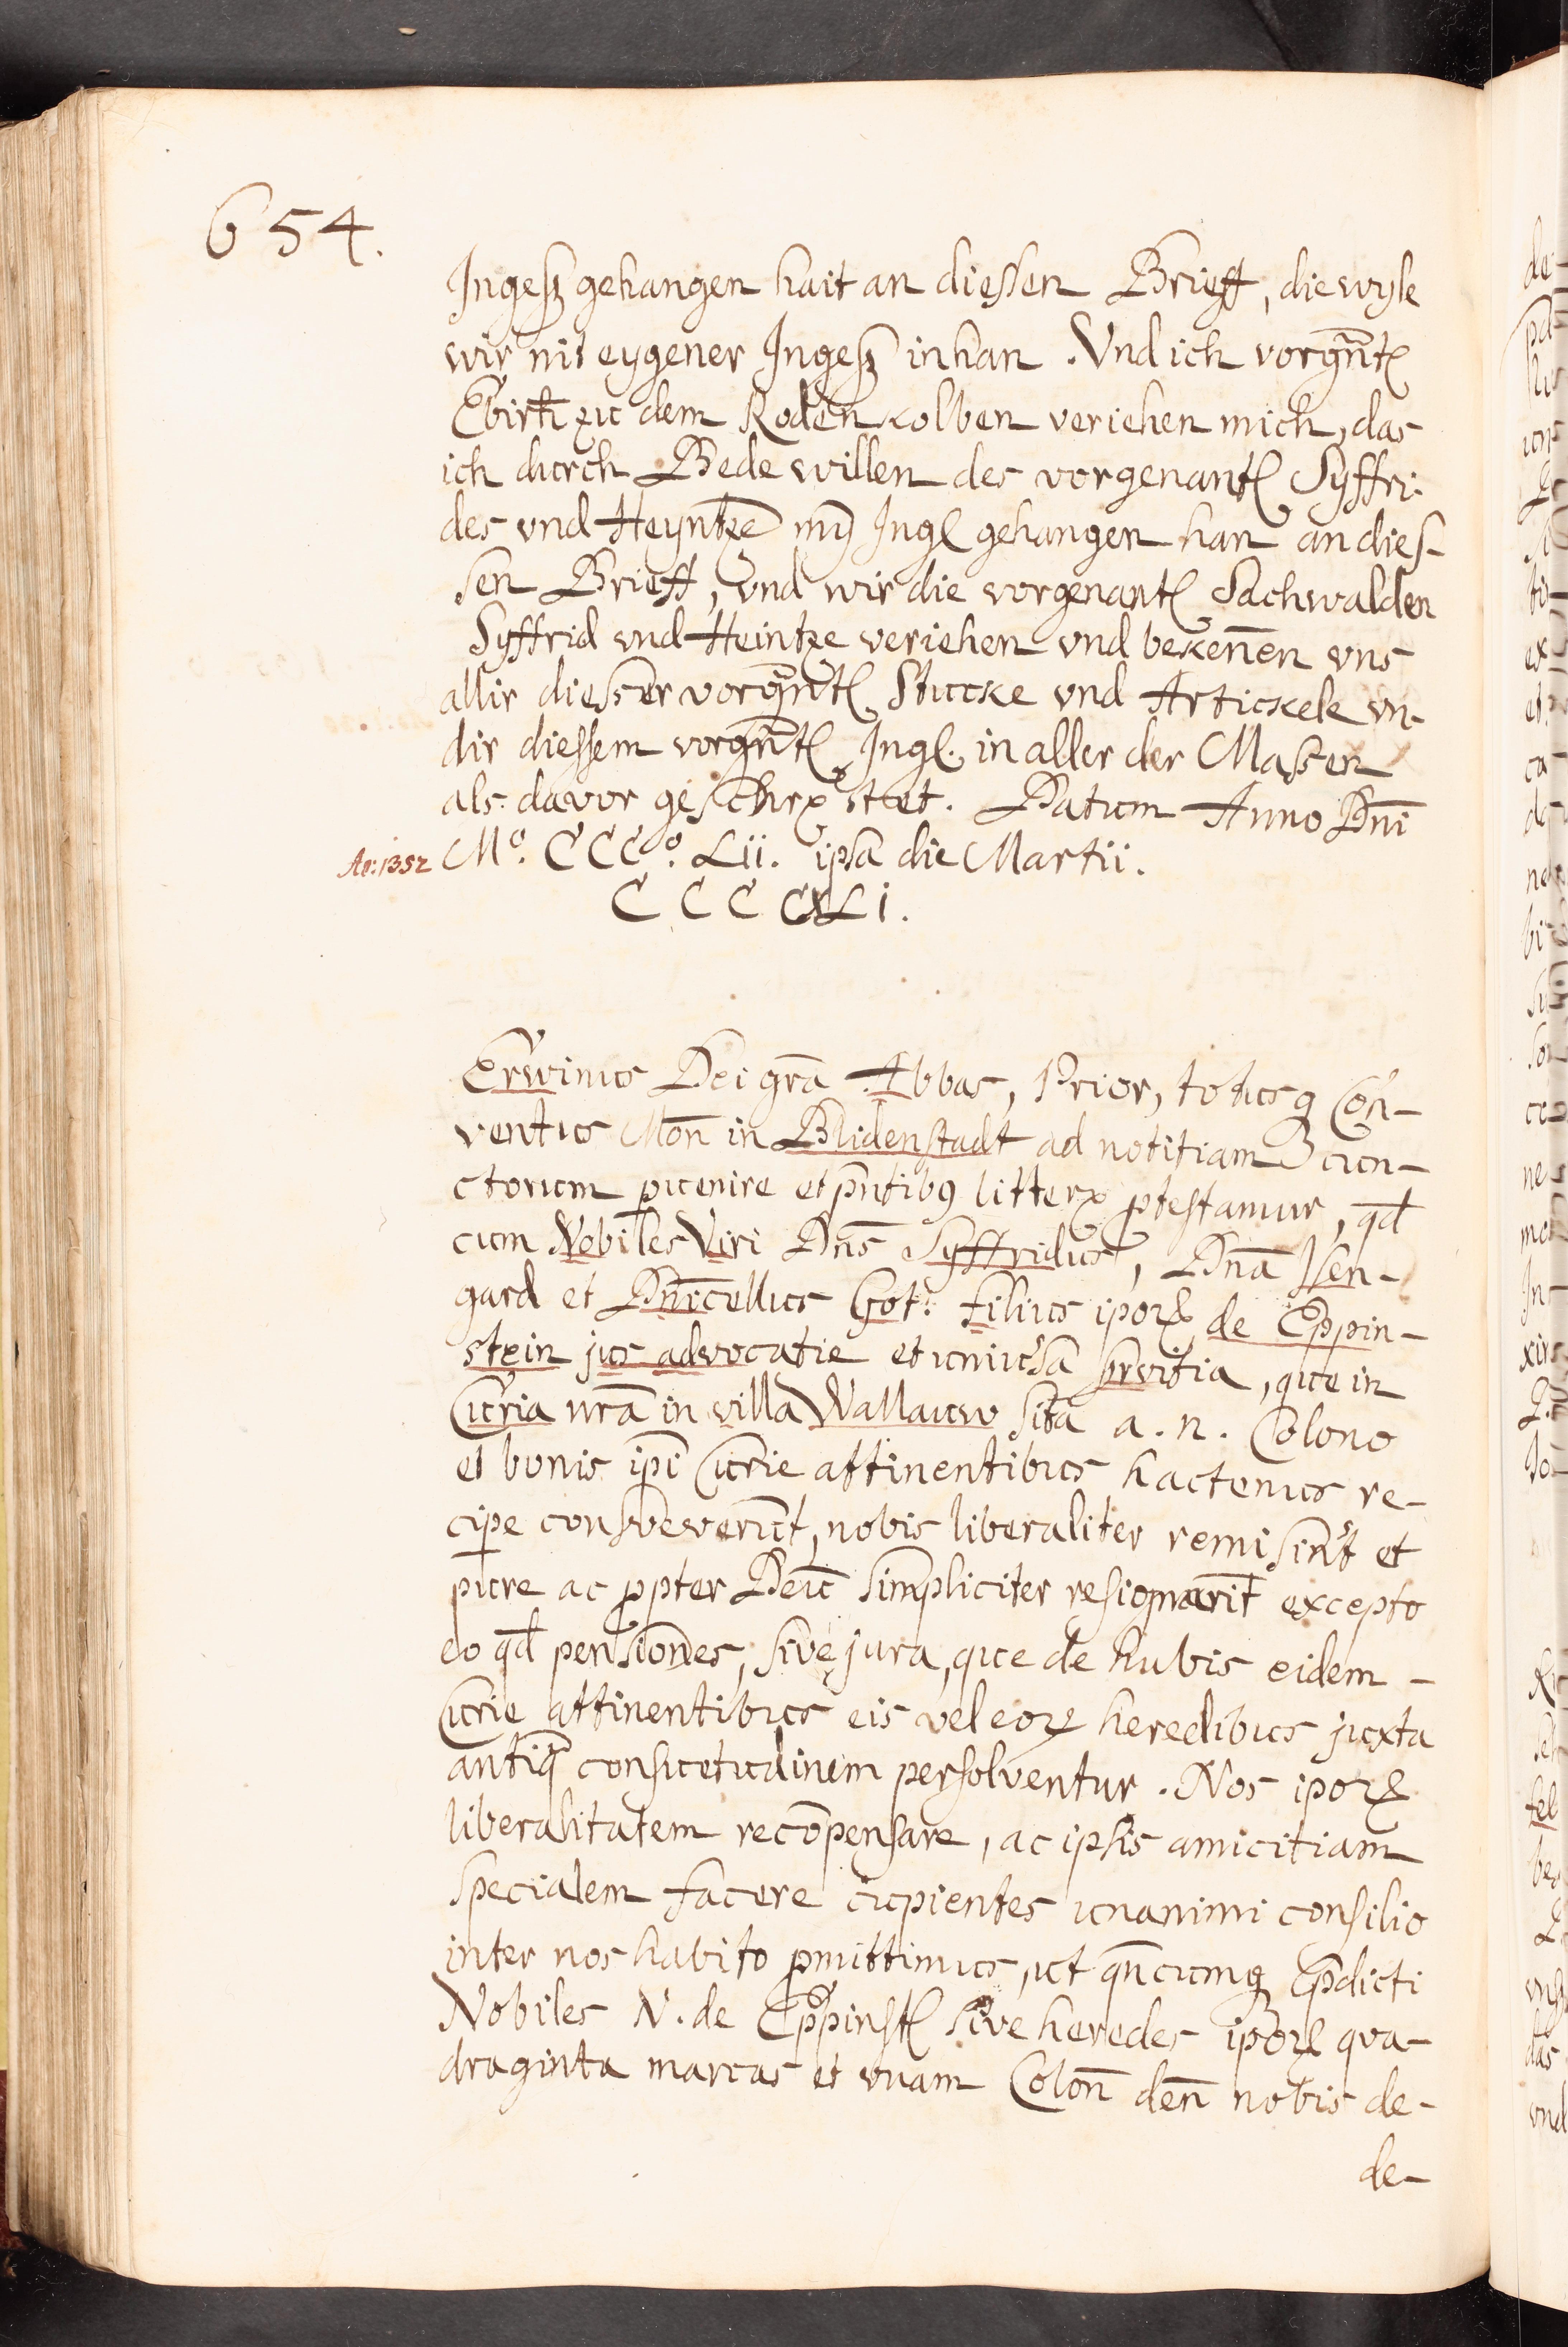 654.
Ingeß gehangen hait an diessen Brieff, die wyle
wir nit eygener Ingeß in han. Vnd ich vorgn̄t
Ebirh zu dem Roden kolben veriehen mich, das
ich durch Bede willen des vorgenant Syffri-
des vnd Heyntze mӯ Ingl gehangen han an dies-
sen Brieff, vnd wir die vorgenant Sachwalden
Syffrid vnd Heintze veriehen vnd bekeñen vns
allir diesser vorgn̄t Stucke vnd Artickele vn-
dir diessem vorgn̄t Ingl. in aller der Massen
als davor geschr stet. Datum Anno Dn̄i
Ao: 1352 Mº. CCCº. Lii. ipsa die Martii.
CCCCXLi.
Erwinus Dei gr̄a Abbas, Prior, totusq Con-
ventus Mon̄ in Blidenstadt ad notitiam cun-
ctorum puenire et p̄ntibꝰ litterꝭ ptestamur, qd
cum Nobiles Viri Dn̄s Syffridus, Dn̄a Isen-
gard et Dn̄icellus Got: filius ipoꝝ de Eppin-
stein jus advocatie et uniuersa servitia, que in
Curia nr̄a in villa Wallauw sita a. n. Colono
et bonis ip̄i Curie attinentibus hactenus re-
cipe consveverūt, nobis liberaliter remisint et
pure ac ppter Deū simpliciter resignarīt excepto
eo qd pensiones, sive jura, que de hubis eidem -
Curie attinentibus eis vel eoꝝ heredibus juxta
antiq̄ consuetudinem persolventur. Nos ipoꝝ
liberalitatem recōpensare, ac ipsis amicitiam
specialem facere cupientes unanimi consilio
inter nos habito pmittimus, ut qn̄cumq p̄dicti
Nobiles N. de Eppinst sive heredes ipoꝝ qua-
draginta marcas et vnam Colon̄ den̄ nobis de-
de-